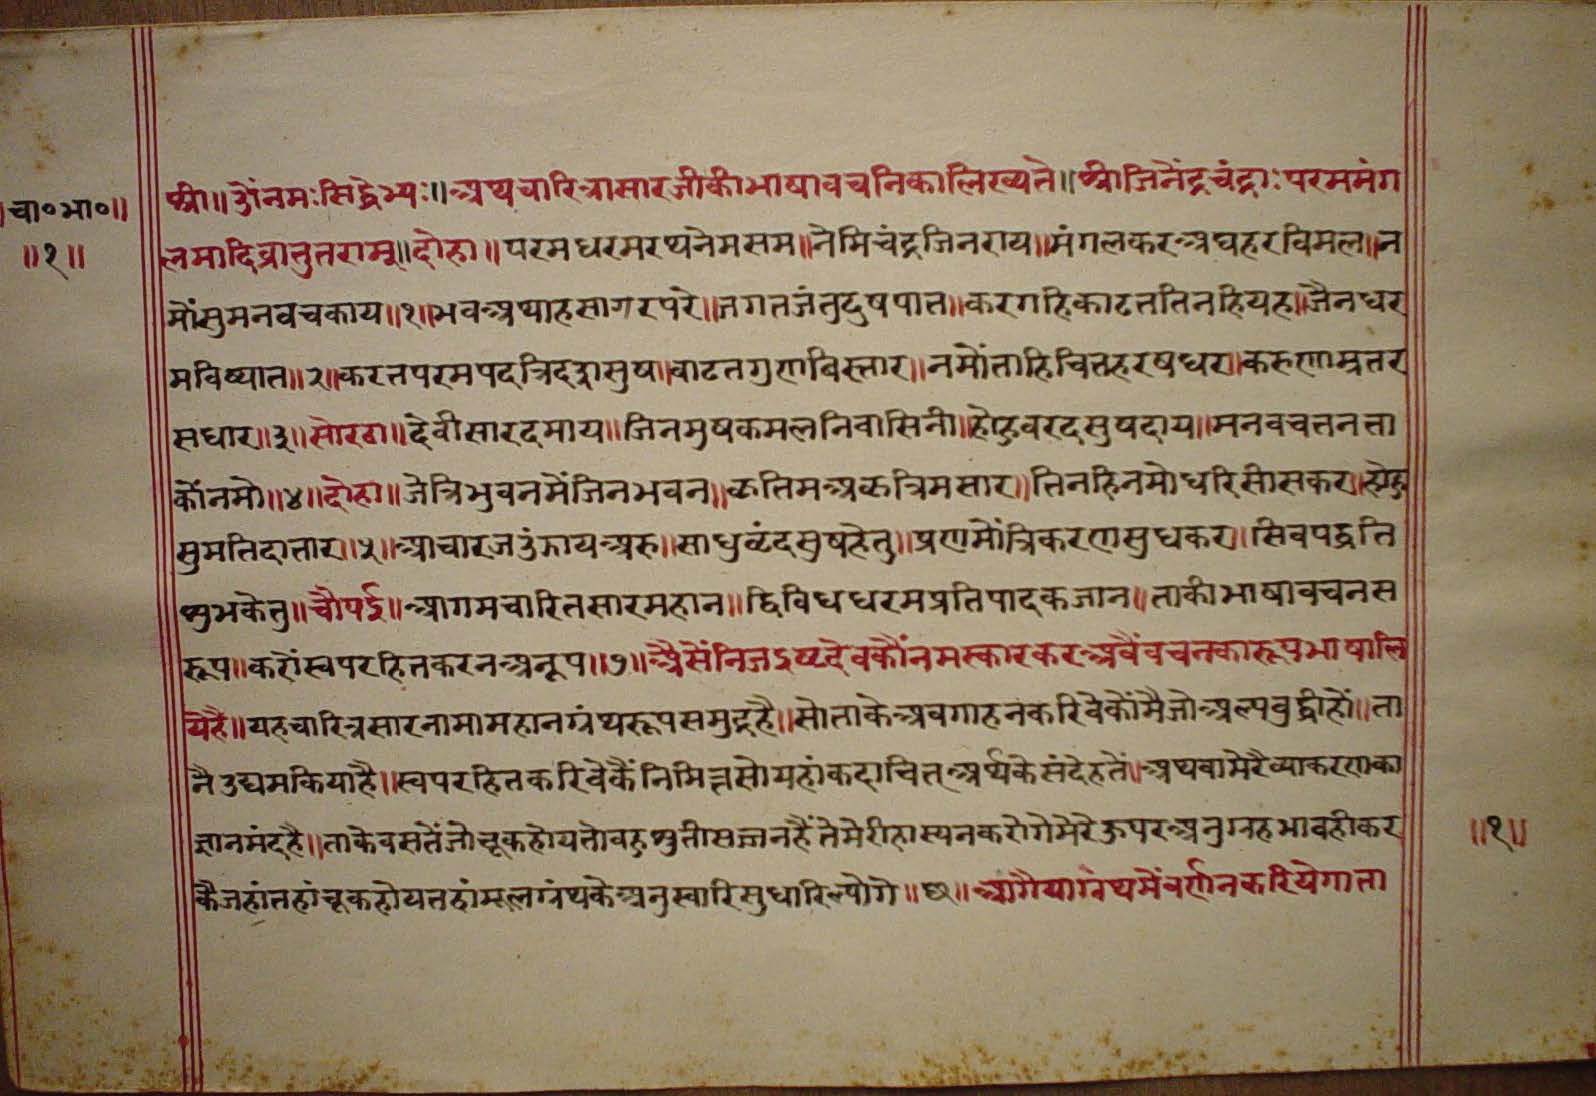 चा॰भा॰॥
॥१॥
श्री॥ओंनमःसिद्धेभ्यः॥अथचारित्रासारजीकीभाषावचनिकालिख्यते॥श्रीजिनेंद्रचंद्राःपरममंग
लमादिप्रानुतराम्॥दोहा॥परमधरमरथनेमसम॥नेमिचंद्रजिनराय॥मंगलकरअघहरविमल॥न
मोंसुमनवचकाय॥१॥भवअथाहसागरपरे॥जगतजंतुदुषपात॥करगहिकाढततिनहियह॥जैनधर
मविष्यात॥२॥करतपरमपदत्रिदशसुष॥वाढतगुणविस्तार॥नमोंताहिचितहरषधर॥करुणाम्रतर
सधार॥३॥सोरठा॥देवीसारदमाय॥जिनमुषकमलनिवासिनी॥होहुवरदसुषदाय॥मनवचतनता
कोंनमो॥४॥दोहा॥जेत्रिभुवनमेंजिनभवन॥कृतिमअकृत्रिमसार॥तिनहिनमोधरिसीसकर॥होहु
सुमतिदातार॥५॥आचारजउंझायअरु॥साधुवृंदसुषहेतु॥प्रणमोंत्रिकरणसुधकर॥सिवपद्धति
शुभकेतु॥चौपई॥आगमचारितसारमहान॥द्विविधधरमप्रतिपादकजान॥ताकीभाषावचनस
रूप॥करोंस्वपरहितकरनअनूप॥७॥अैसेंनिजइष्टदेवकौंनमस्कारकरअवैंवचनकारूपभाषालि
षेहै॥यहचारित्रसारनामामहानग्रंथरूपसमुद्रहै॥सोताकेअवगाहनकरिवेकोंमैजोअल्पबुद्धीहों॥ता
नैउद्यमकियाहै॥स्वपरहितकरिवेकैंनिमित्तसोयहांकदाचित्अर्थकेसंदेहतें॥अथवामेरैव्याकरणका
ज्ञानमंदहै॥ताकेवसतेंजोचूकहोयतोवहुश्रुतीसज्जनहैंतेमेरीहास्यनकरोगेमेरेऊपरअनुग्रहभावहीकर
कैजहांतहांचूकहोयतहांमूलग्रंथकेअनुस्वारिसुधारिल्योगे॥छ॥आगैयाग्रंथमेंवर्णनकरियेगाता
॥१॥